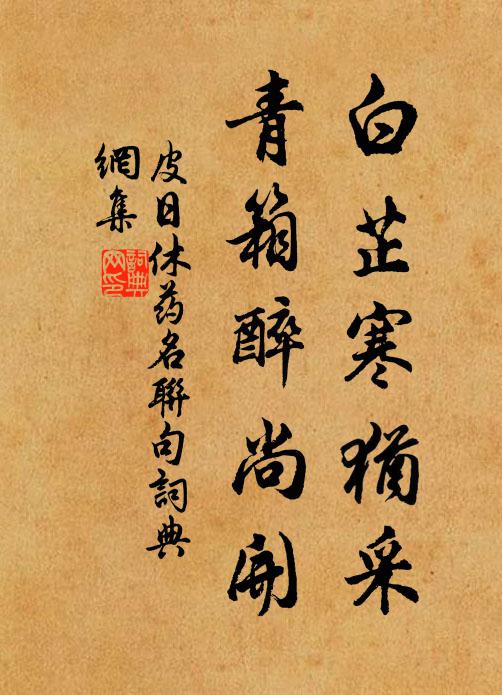 白芷寒犹采
青箱醉尚開
皮日休药名聯句詞典
網集
詞典
网印